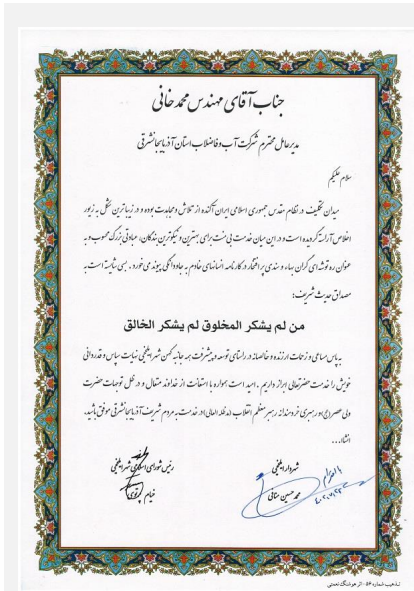 جناب آقای مهندس محمدخانی
مدیرعامل محترم شرکت آب و فاضلاب استان آذربایجانشرقی
سلام علیکم
میدان تکلیف در نظام مقدس جمهوری اسلامی ایران آکنده از تلاش و مجاهدت بوده و در زیباترین شکل به زیور
اخلاص آراسته گردیده است و در این میان خدمت بی منت برای بهترین و نیکوترین بندگان، عبادتی بزرگ محسوب و به
عنوان ره توشه ای گران بهاء و سندی پر افتخار در کارنامه انسانهای خادم به جاودانگی پیوند می خورد، بسی شایسته است به
مصداق حدیث شریف:
من لم یشکر المخلوق لم یشکر الخالق
به پاس مساعی و زحمات ارزنده و خالصانه در راستای توسعه و پیشرفت همه جانبه کهن شهر ایلخچی نهایت سپاس و قدردانی
خویش را خدمت حضرتعالی ابراز داریم. امید است همواره با استعانت از خداوند متعال و در ظل توجهات حضرت
ولی عصر (عج) و رهبری خردمندانه رهبر معظم انقلاب (مدظله العالی) در خدمت به مردم شریف آذربایجانشرقی موفق باشید.
انشاا...
شهردار ایلخچی
محمد حسین
رئیس شورای اسلامی شهر ایلخچی
خیام
با احترام
تذهیب شماره ۵۴ - اثر هوشنگ نعمتی